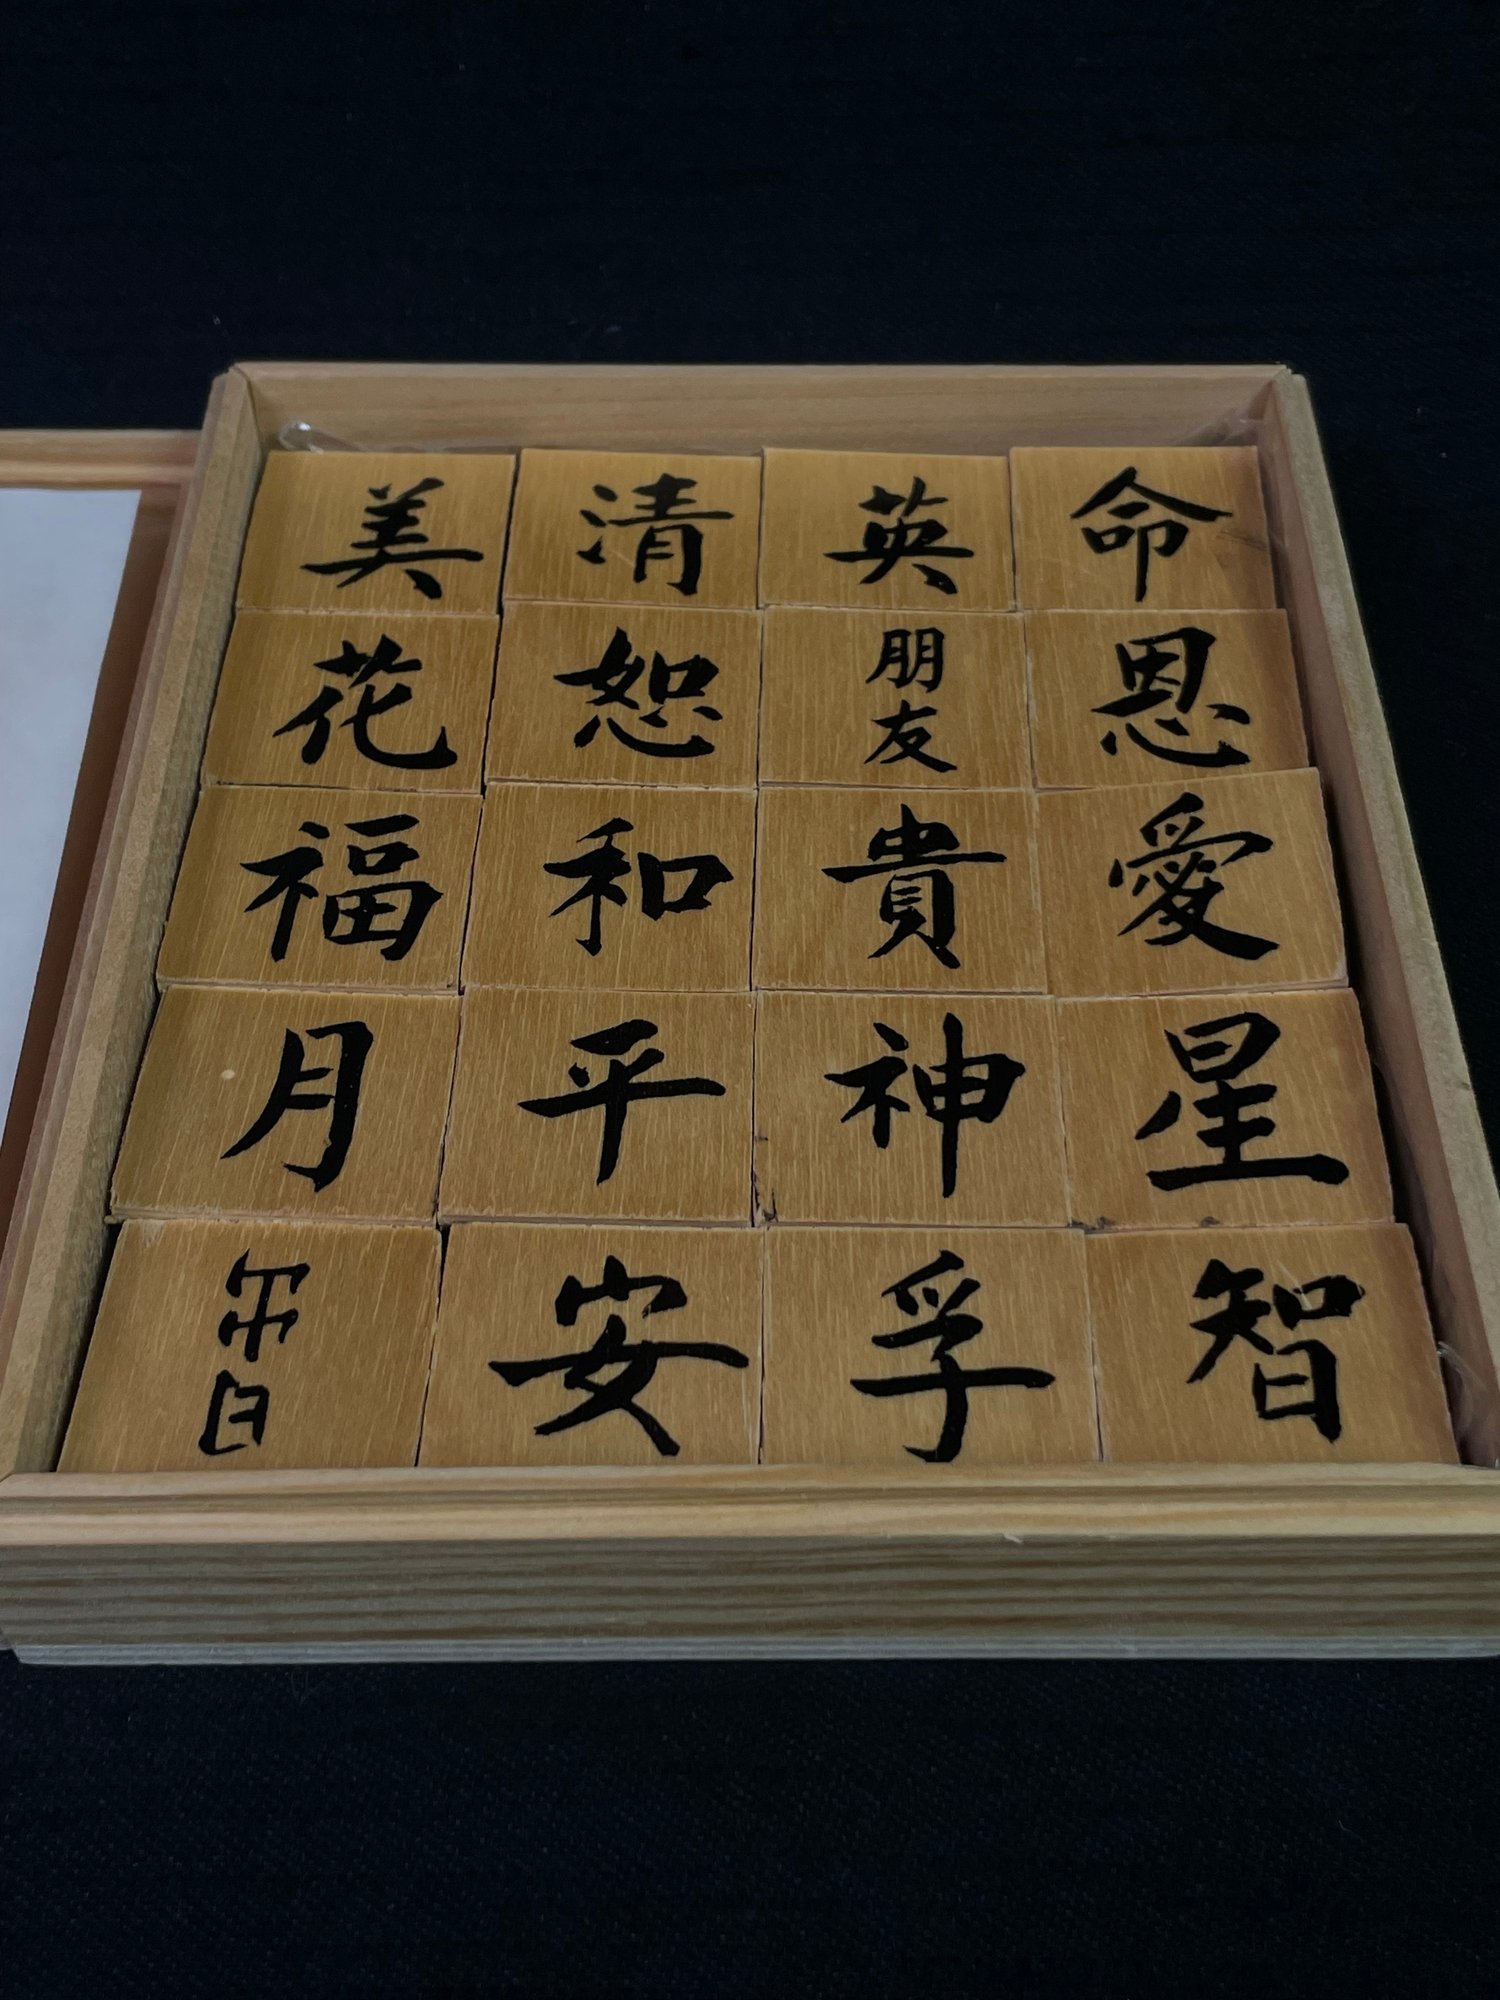 美 清 英 命
花 恕 朋友 恩
福 和 貴 愛
月 平 神 星
安 孚 智